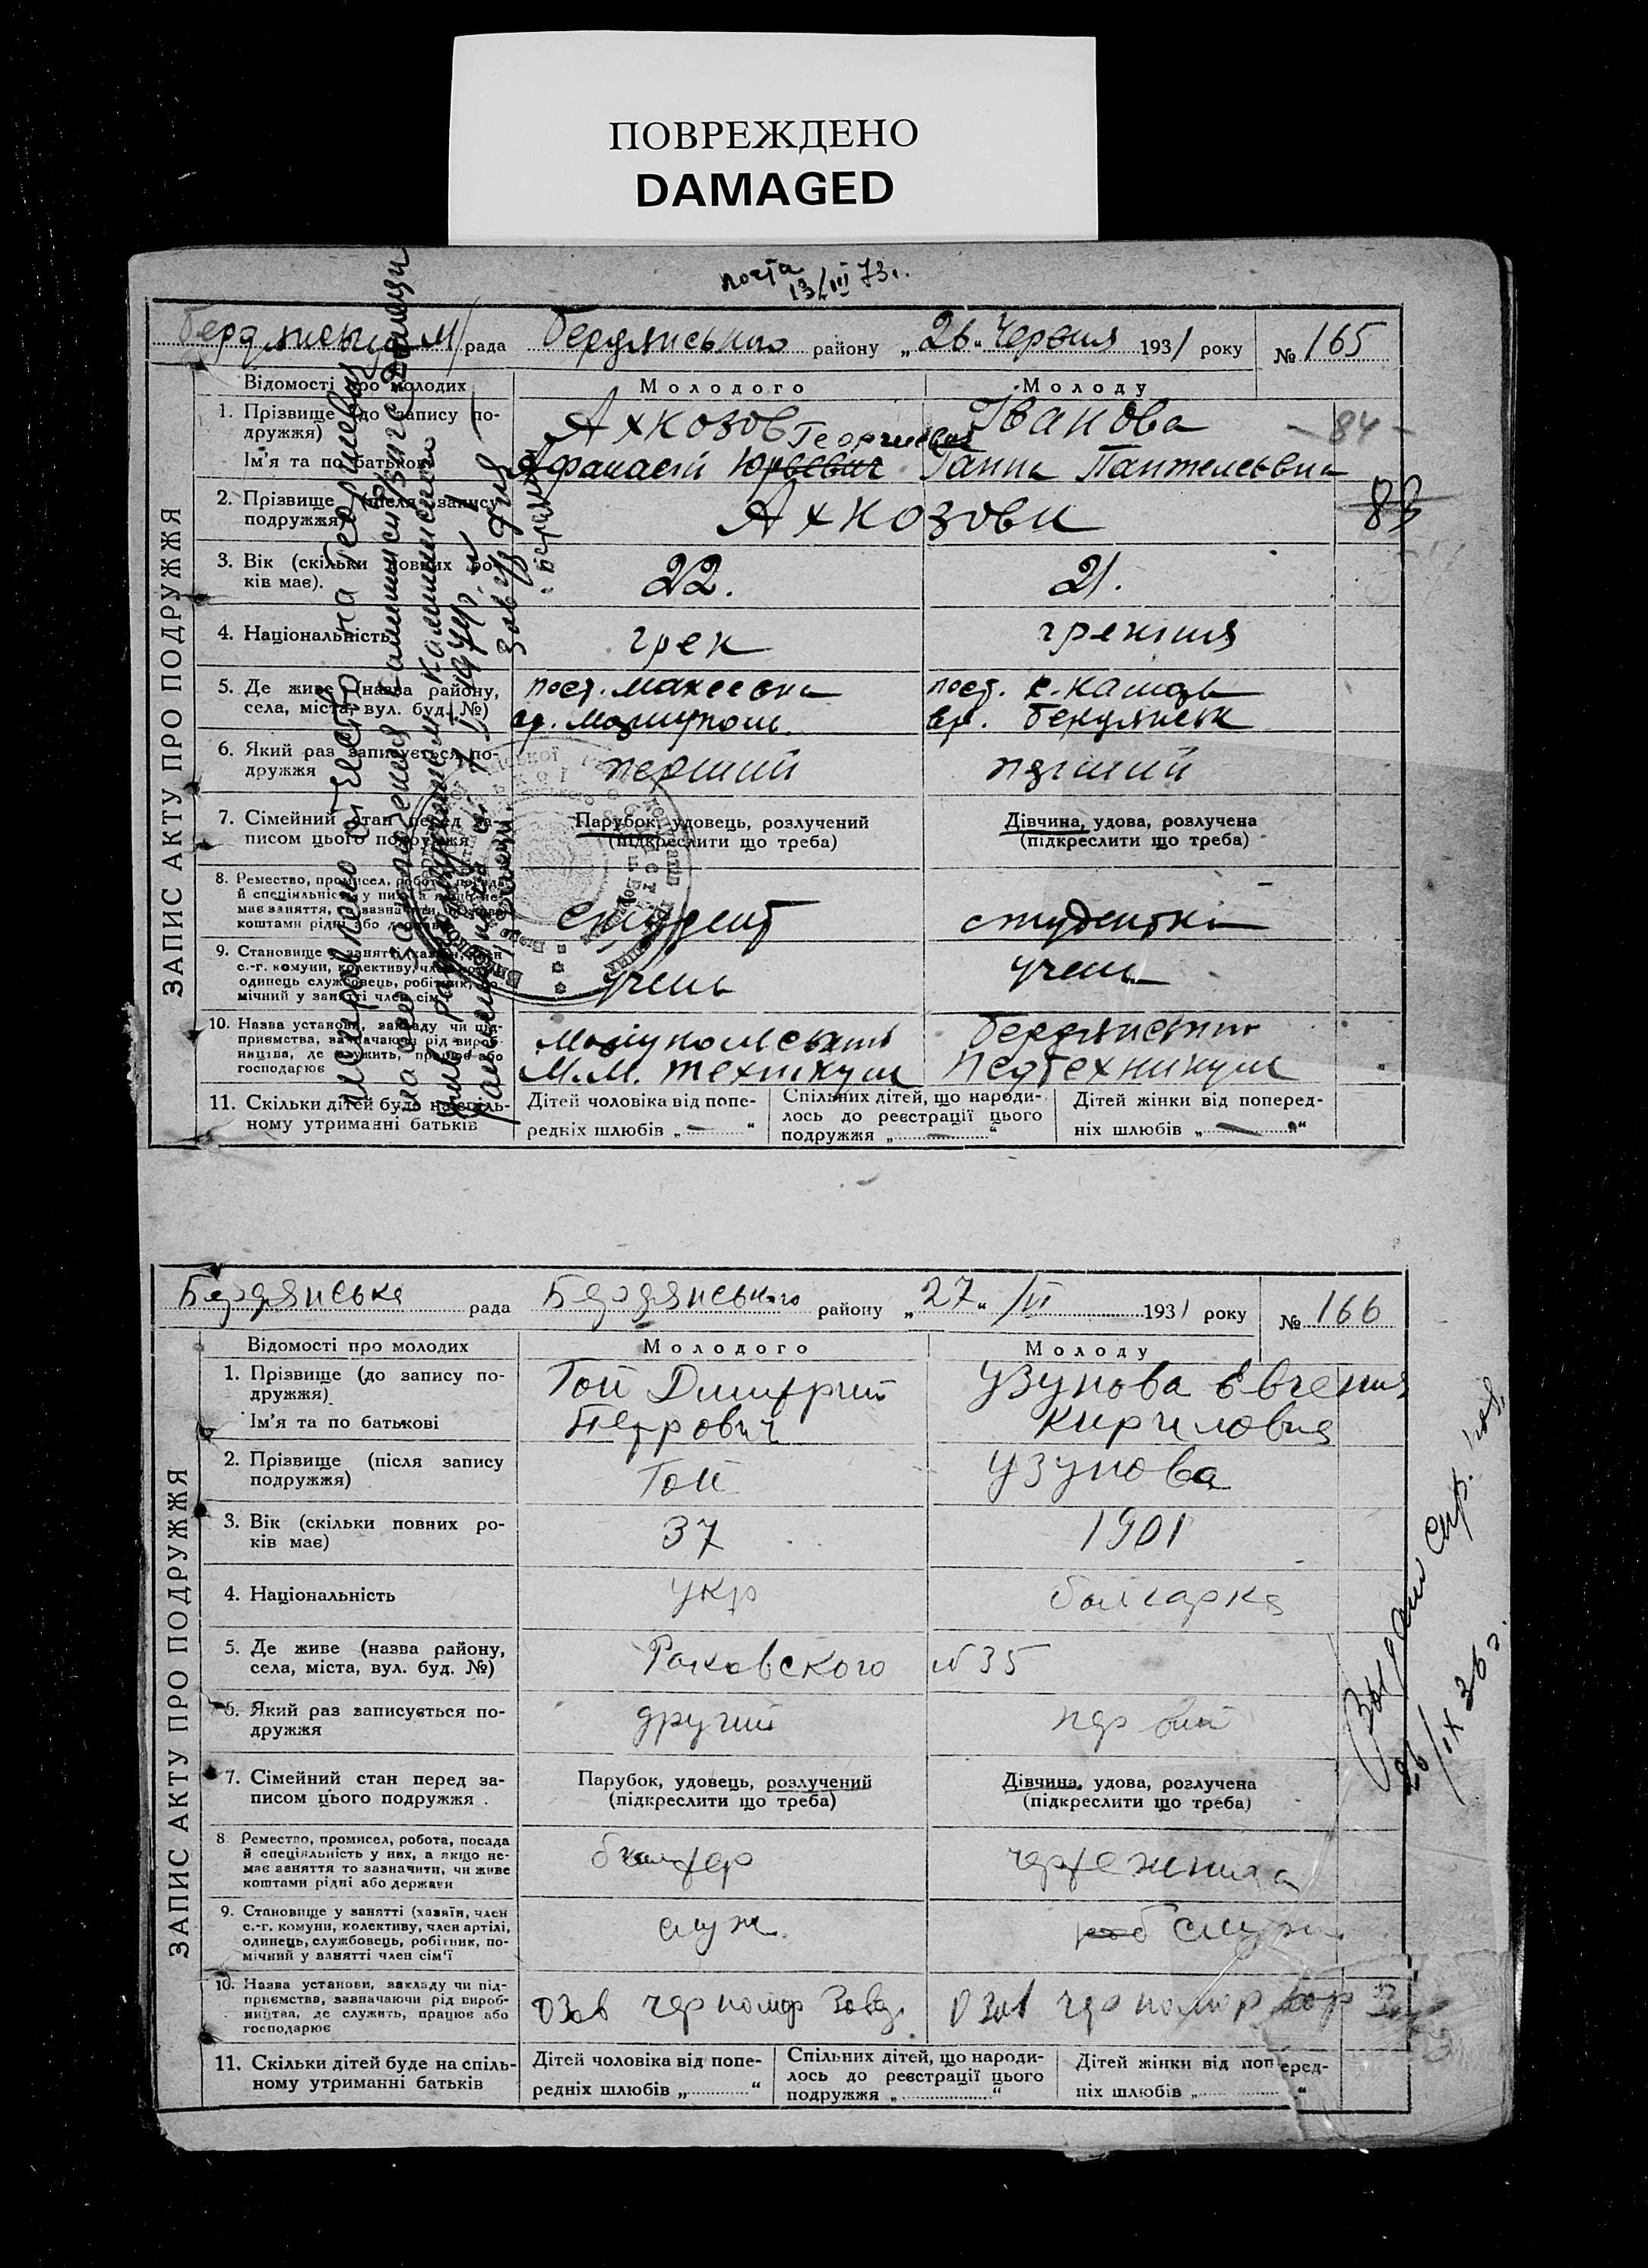 ПОВРЕЖДЕНО
DAMAGED
почта
13/III 73 г.
рада Бердянського району „26" Червня 1931 року № 165
ЗАПИС АКТУ ПРО ПОДРУЖЖЯ
Відомості про молодих Молодого Молоду
1. Прізвище (до запису по-
дружжя) Ахкозов Іванова
84
Георгиевич
Ім'я та по батькові Афанасій Юрьевич Ганна Пантелеевна
2. Прізвище (після запису
подружжя) Ахкозови
83
3. Вік (скільки повних ро-
ків має). 22. 21.
4. Національність грек грекиня
5. Де живе (назва району,
села, міста, вул. буд. №)
пост.
вр. Маріуполь. вр. Бердянськ
6. Який раз записується по-
дружжя перший перший
7. Сімейний стан перед за-
писом цього подружжя
Парубок, удовець, розлучений
(підкреслити що треба)
Дівчина, удова, розлучена
(підкреслити що треба)
8. Ремество, промисел, робота, посада
й спеціяльність у них, а якщо не-
має заняття, то зазначити, чи живе
коштами рідні або держави
студент студентка
9. Становище у занятті (хазяїн, член
с.-г. комуни, колективу, член артілі,
одинець, службовець, робітник, по-
мічний у занятті член сім'ї
учень учень
10. Назва установи, закладу чи під-
приємства, зазначаючи рід вироб-
ництва, де служить, працює або
господарює
Маріупольський
М.М. технікум
Бердянський
Педтехникум
11. Скільки дітей буде на спіль-
ному утриманні батьків
Дітей чоловіка від попе-
редніх шлюбів „—"
Спільних дітей, що народи-
лось до реєстрації цього
подружжя „—"
Дітей жінки від поперед-
ніх шлюбів „—"
исправлено отчество на Георгиевич
на основании
1974
Бердянська рада Бердянського району „27" /VI 1931 року № 166
ЗАПИС АКТУ ПРО ПОДРУЖЖЯ
Відомості про молодих Молодого Молоду
1. Прізвище (до запису по-
дружжя)
Ім'я та по батькові
Гой Димитрий
Петрович
Узунова Євгения
Кириловна
2. Прізвище (після запису
подружжя) Гой Узунова
3. Вік (скільки повних ро-
ків має) 37 1901
4. Національність укр болгарка
5. Де живе (назва району,
села, міста, вул. буд. №) Раковского № 35
6. Який раз записується по-
дружжя другий первий
7. Сімейний стан перед за-
писом цього подружжя
Парубок, удовець, розлучений
(підкреслити що треба)
Дівчина, удова, розлучена
(підкреслити що треба)
8 Ремество, промисел, робота, посада
й спеціяльність у них, а якщо не-
має заняття то зазначити, чи живе
коштами рідні або держави
чертежница
9. Становище у занятті (хазяїн, член
с.-г. комуни, колективу, член артілі,
одинець, службовець, робітник, по-
мічний у занятті член сім'ї
служ. роб служ
10. Назва установи, закладу чи під-
приємства, зазначаючи рід вироб-
ництва, де служить, працює або
господарює
черномор Завод черномор
11. Скільки дітей буде на спіль-
ному утриманні батьків
Дітей чоловіка від попе-
редніх шлюбів „ "
Спільних дітей, що народи-
лось до реєстрації цього
подружжя „ "
Дітей жінки від поперед-
ніх шлюбів „ "
26/IX 36 г.